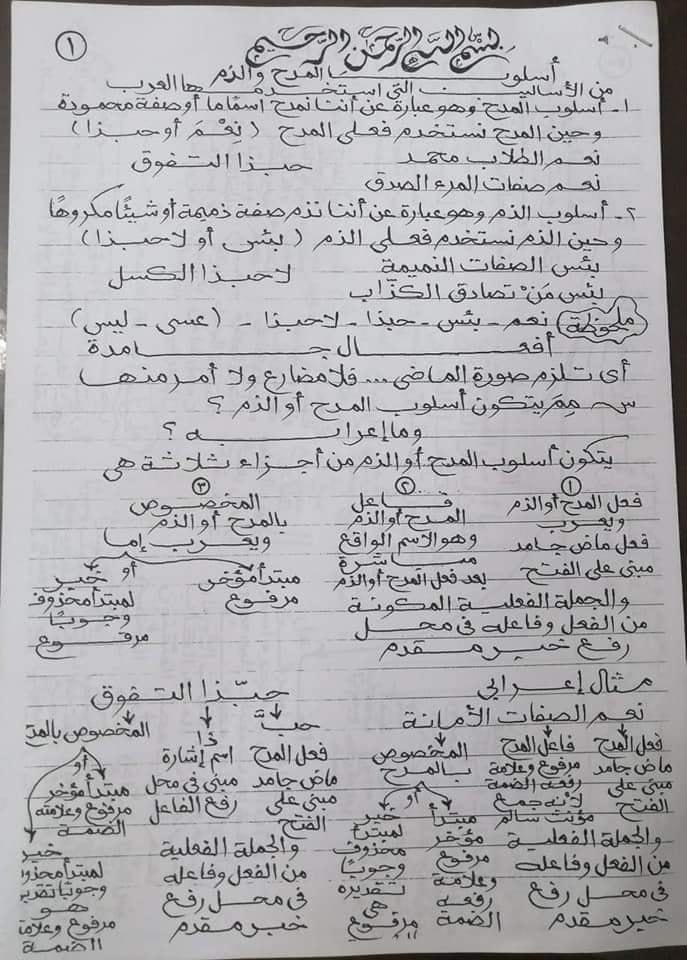 ١
بسم الله الرحمن الرحيم
أسلوب المدح والذم
من الأساليب التي استخدمها العرب
١- أسلوب المدح وهو عبارة عن أننا نمدح اسمًا ما أو صفة محمودة
وحين المدح نستخدم فعلى المدح (نِعْمَ أو حبذا)
نعم الطلاب محمد حبذا التفوق
نعم صفات المرء الصدق
٢- أسلوب الذم وهو عبارة عن أننا نذم صفة ذميمة أو شيئًا مكروهًا
وحين الذم نستخدم فعلى الذم (بئس أو لا حبذا)
بئس الصفات النميمة لا حبذا الكسل
بئس مَنْ تصادق الكذّاب
ملحوظة نعم - بئس - حبذا - لا حبذا - (عسى - ليس)
أفعال جامدة
أى تلزم صورة الماضى... فلا مضارع ولا أمر منها
س مِمَ يتكون أسلوب المدح أو الذم ؟
وما إعرابه ؟
يتكون أسلوب المدح أو الذم من أجزاء ثلاثة هى
١ ٢ ٣
فعل المدح أو الذم فاعل المخصوص
ويعرب المدح أو الذم بالمدح أو الذم
فعل ماض جامد وهو الاسم الواقع ويعرب إما
مبنى على الفتح مباشرة بعد فعل المدح أو الذم مبتدأ مؤخر أو خبر
والجملة الفعلية المكونة مرفوع لمبتدأ محذوف
من الفعل وفاعله فى محل وجوبًا
رفع خبر مقدم مرفوع
مثال إعرابي حبّذا التفوق
نعم الصفات الأمانة حبَّ ذا المخصوص بالمدح
فعل المدح فاعل المدح المخصوص فعل المدح اسم إشارة أو
ماض جامد مرفوع وعلامة بالمدح ماض جامد مبنى فى محل مبتدأ مؤخر
مبنى على رفعه الضمة أو مبنى على رفع الفاعل مرفوع وعلامته
الفتح لأنه جمع مؤنث سالم مبتدأ خبر الفتح الضمة
والجملة الفعلية مؤخر لمبتدأ محذوف والجملة الفعلية خبر
من الفعل وفاعله مرفوع وجوبًا من الفعل وفاعله لمبتدأ
فى محل رفع وعلامة رفعه تقديره هى فى محل رفع وجوبًا
خبر مقدم الضمة مرفوع خبر مقدم هو
مرفوع
الضمة